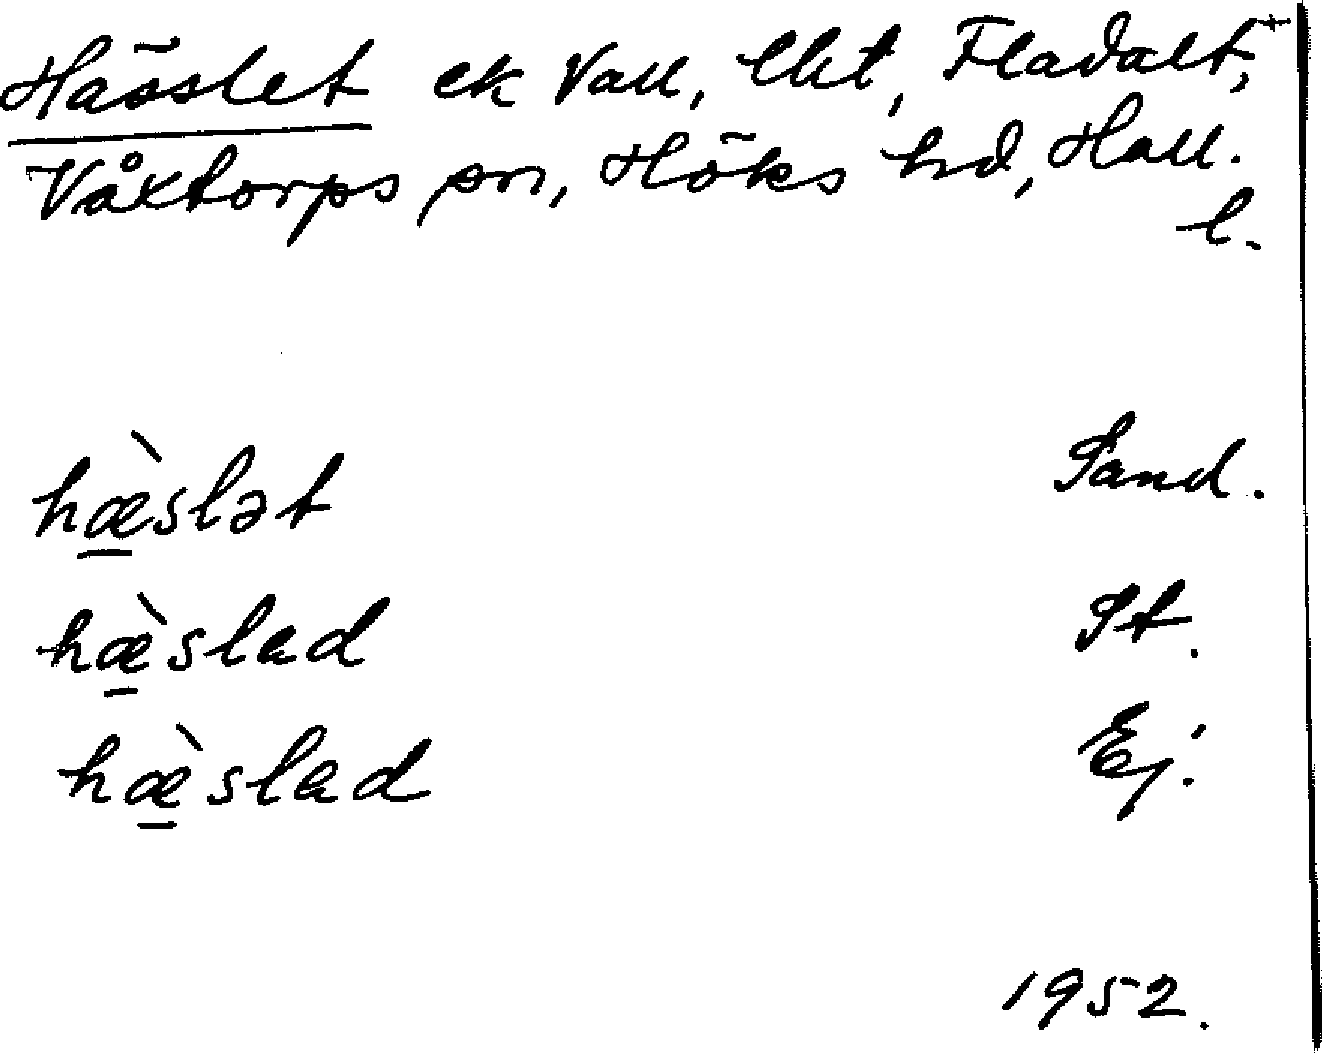 Hässlet ek Vall, lht, Fladalt,
Våxtorps sn, Höks hd, Hall.
l.
hæ̀slət Sand.
hæ̀slad St.
hæ̀slad Ej.
1952.